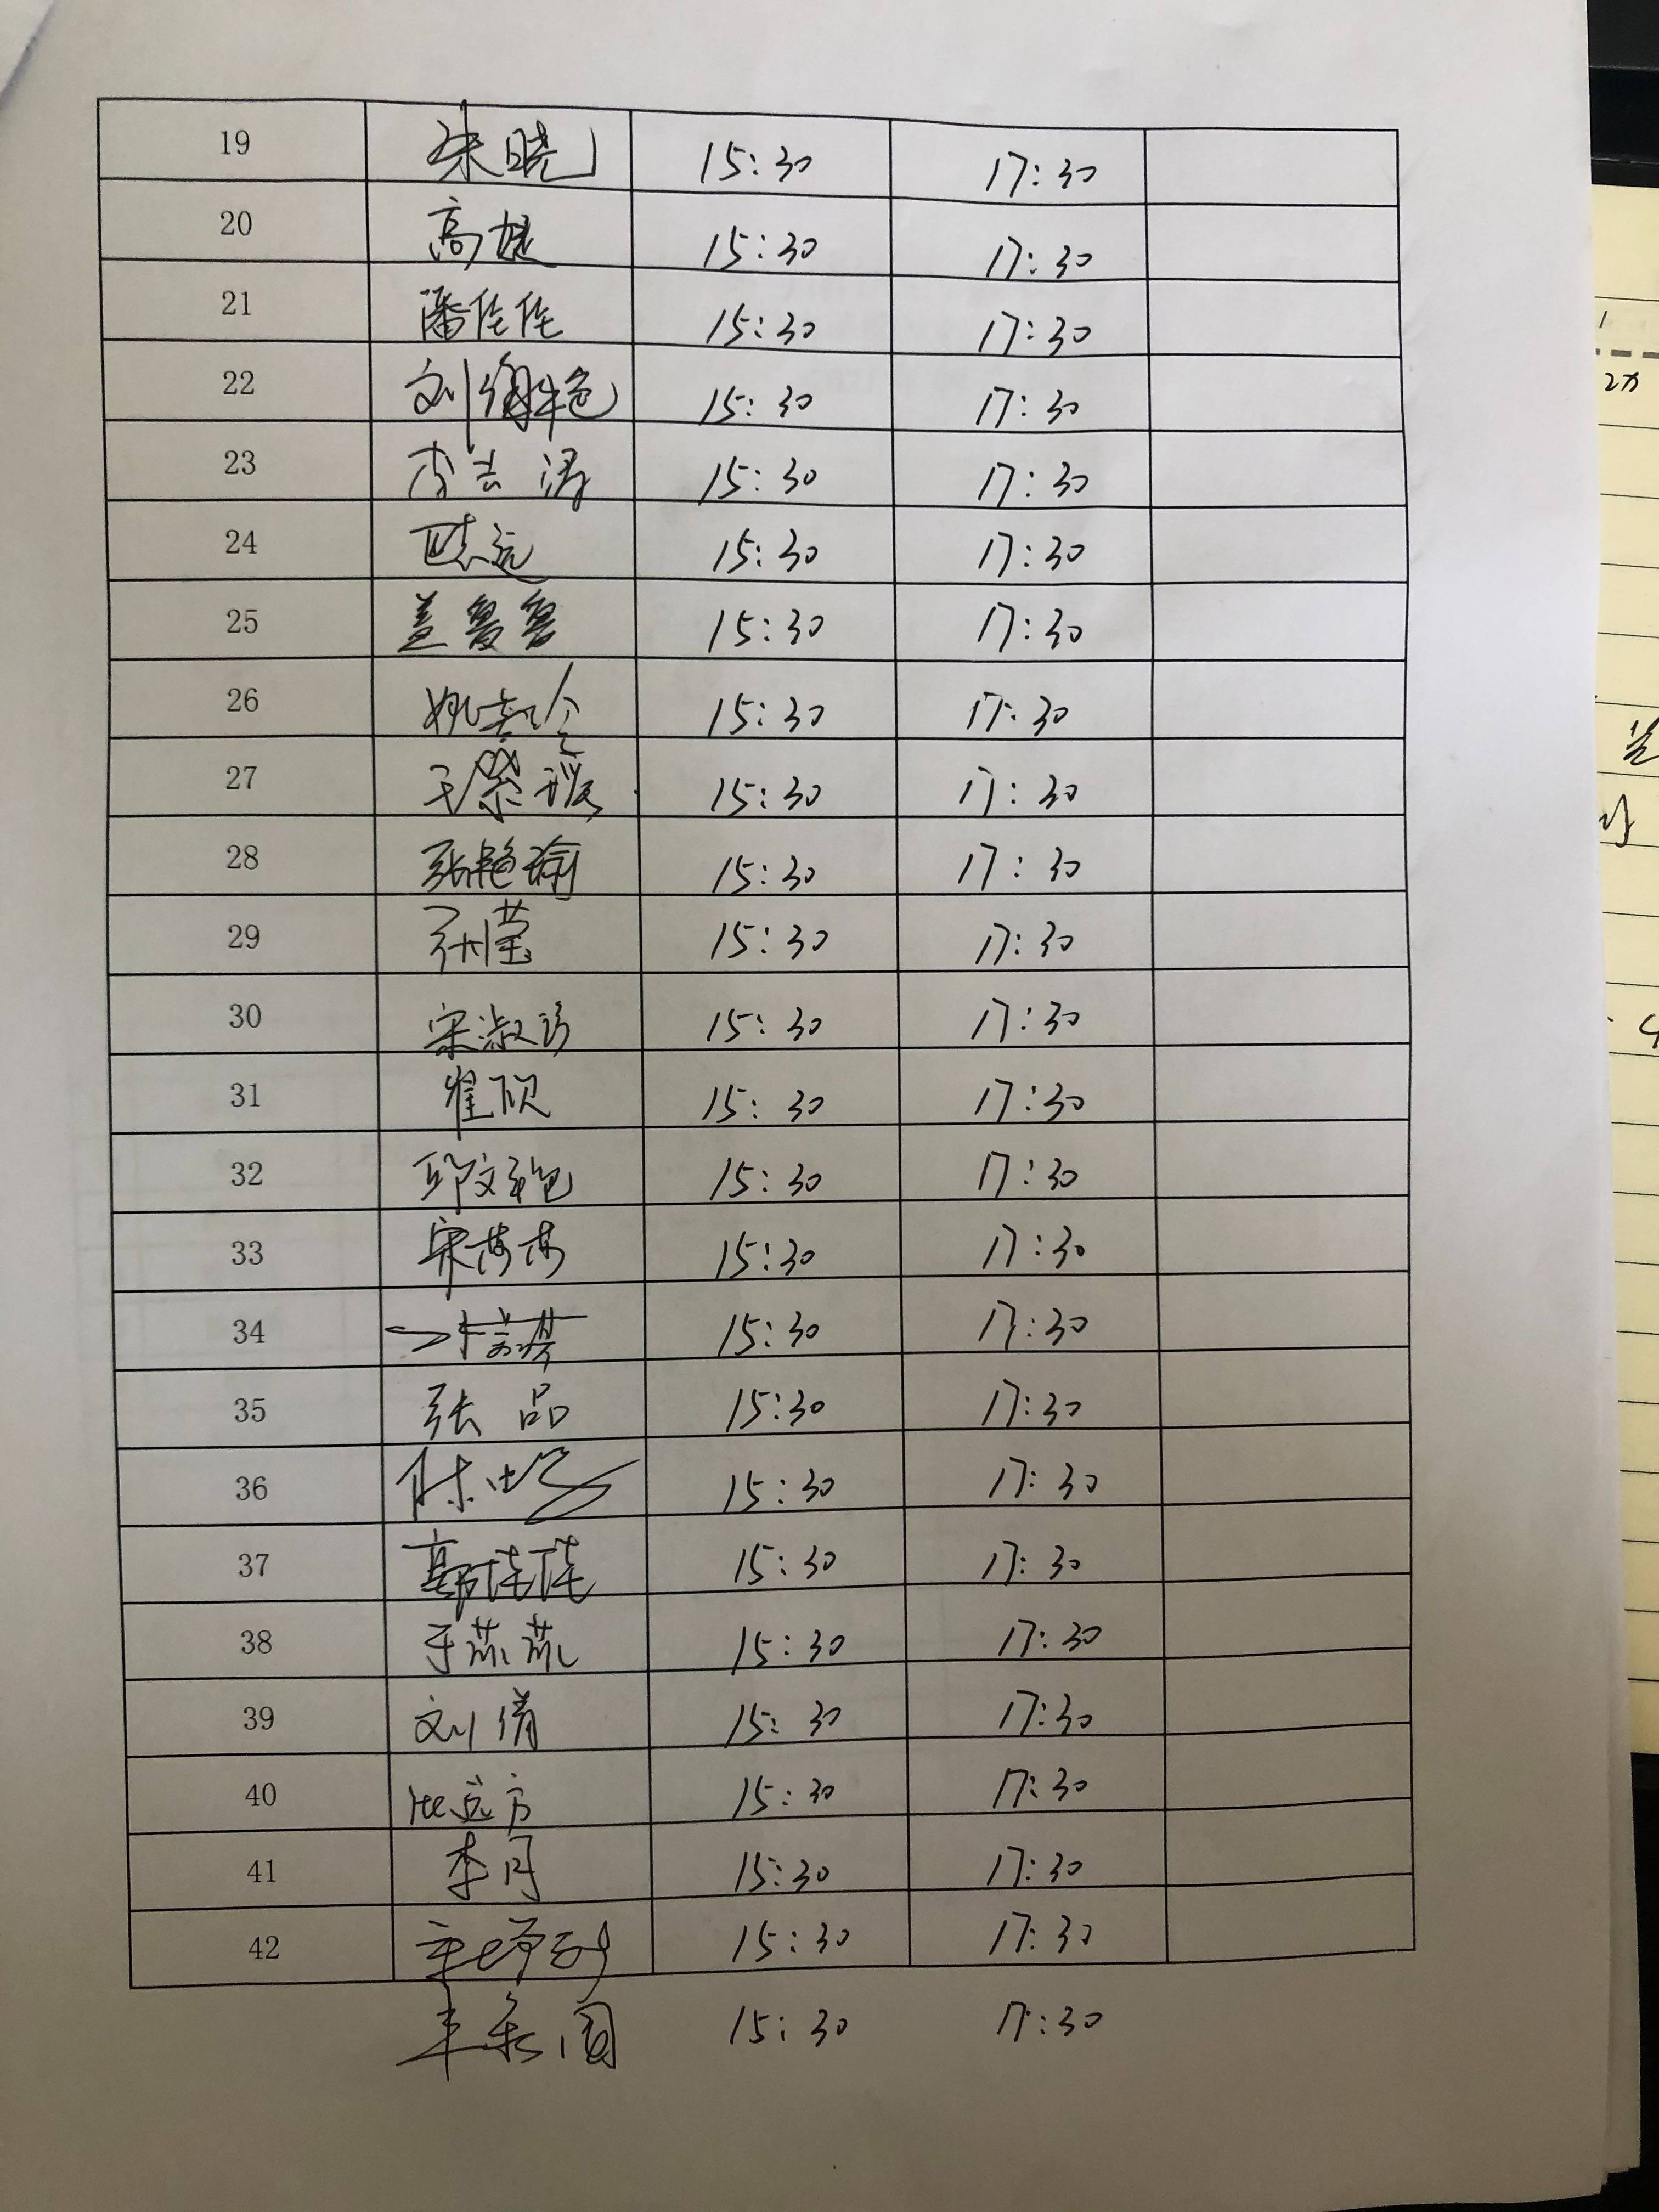 19 朱晓 15:30 17:30
20 高婕 15:30 17:30
21 潘佳佳 15:30 17:30
22 刘 艳 15:30 17:30
23 李志涛 15:30 17:30
24 15:30 17:30
25 盖鲁鲁 15:30 17:30
26 姚志玲 15:30 17:30
27 王荣 15:30 17:30
28 张艳瑜 15:30 17:30
29 孙莹 15:30 17:30
30 宋淑珍 15:30 17:30
31 崔砚 15:30 17:30
32 邱文艳 15:30 17:30
33 宋莎莎 15:30 17:30
34 15:30 17:30
35 张品 15:30 17:30
36 陈 15:30 17:30
37 郭佳佳 15:30 17:30
38 于蔬蔬 15:30 17:30
39 刘倩 15:30 17:30
40 远方 15:30 17:30
41 李丹 15:30 17:30
42 15:30 17:30
15:30 17:30